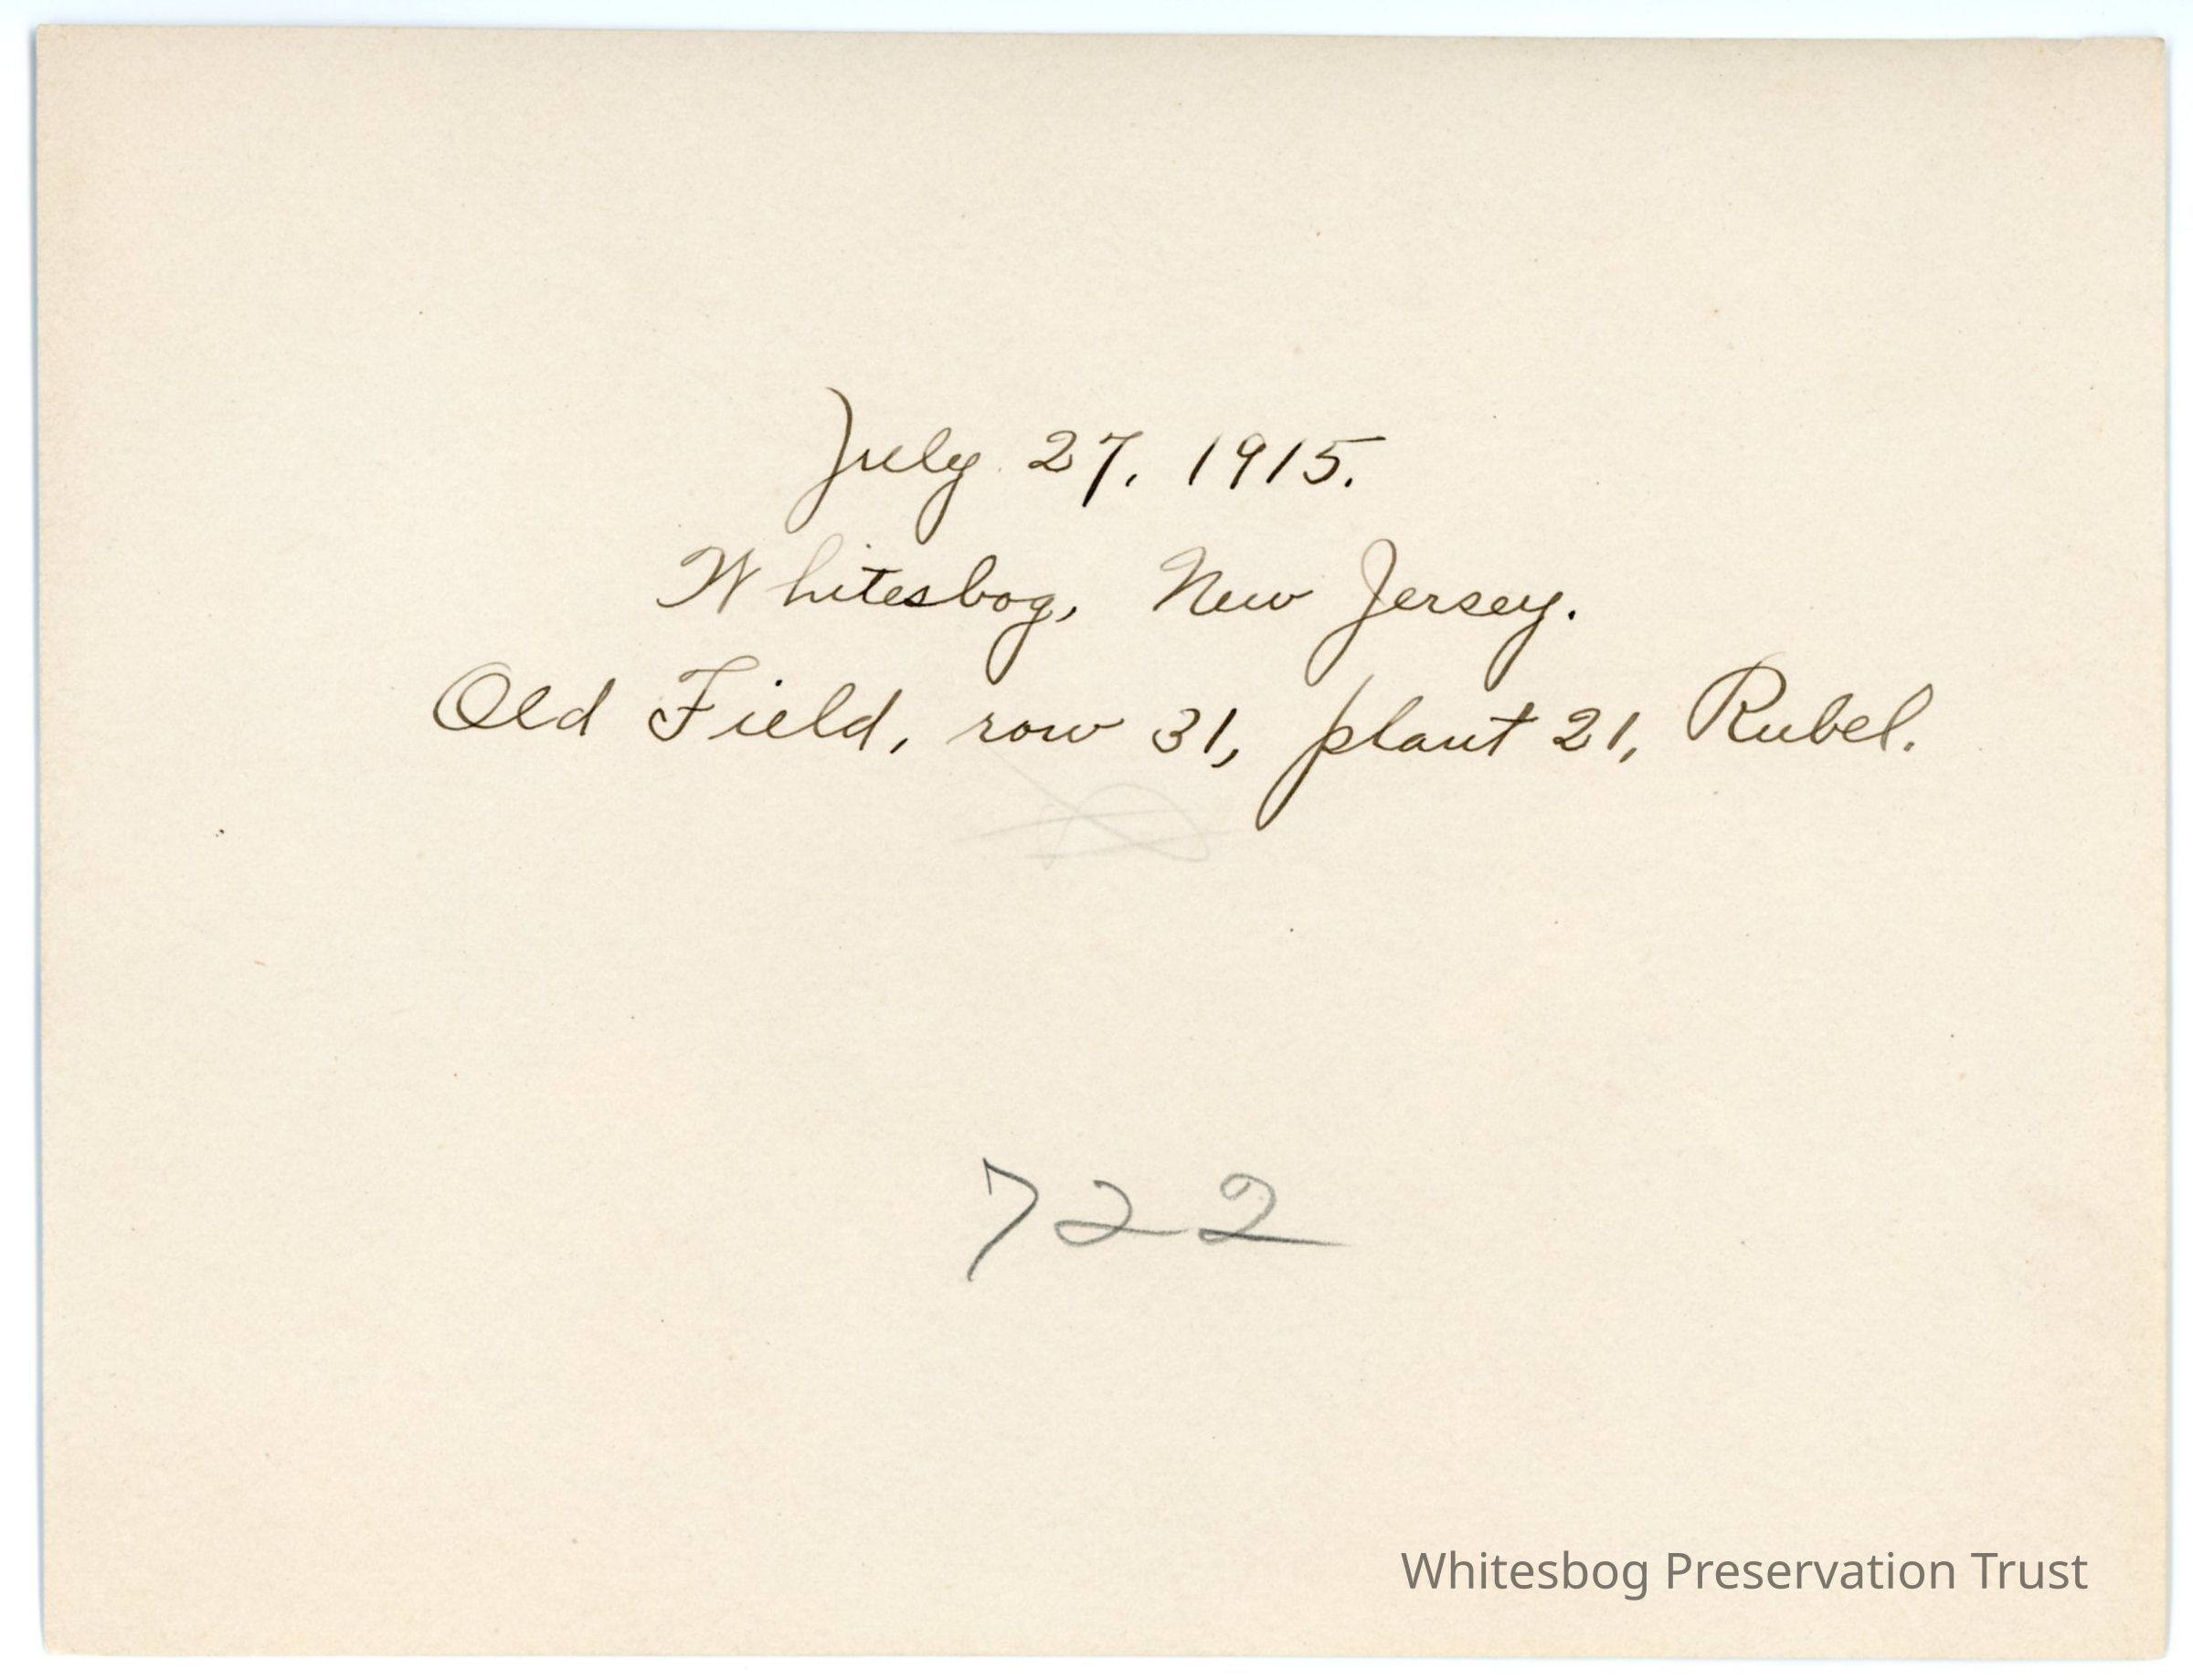 July 27, 1915.
Whitesbog, New Jersey.
Old Field, row 31, plant 21, Rubel.
722
Whitesbog Preservation Trust